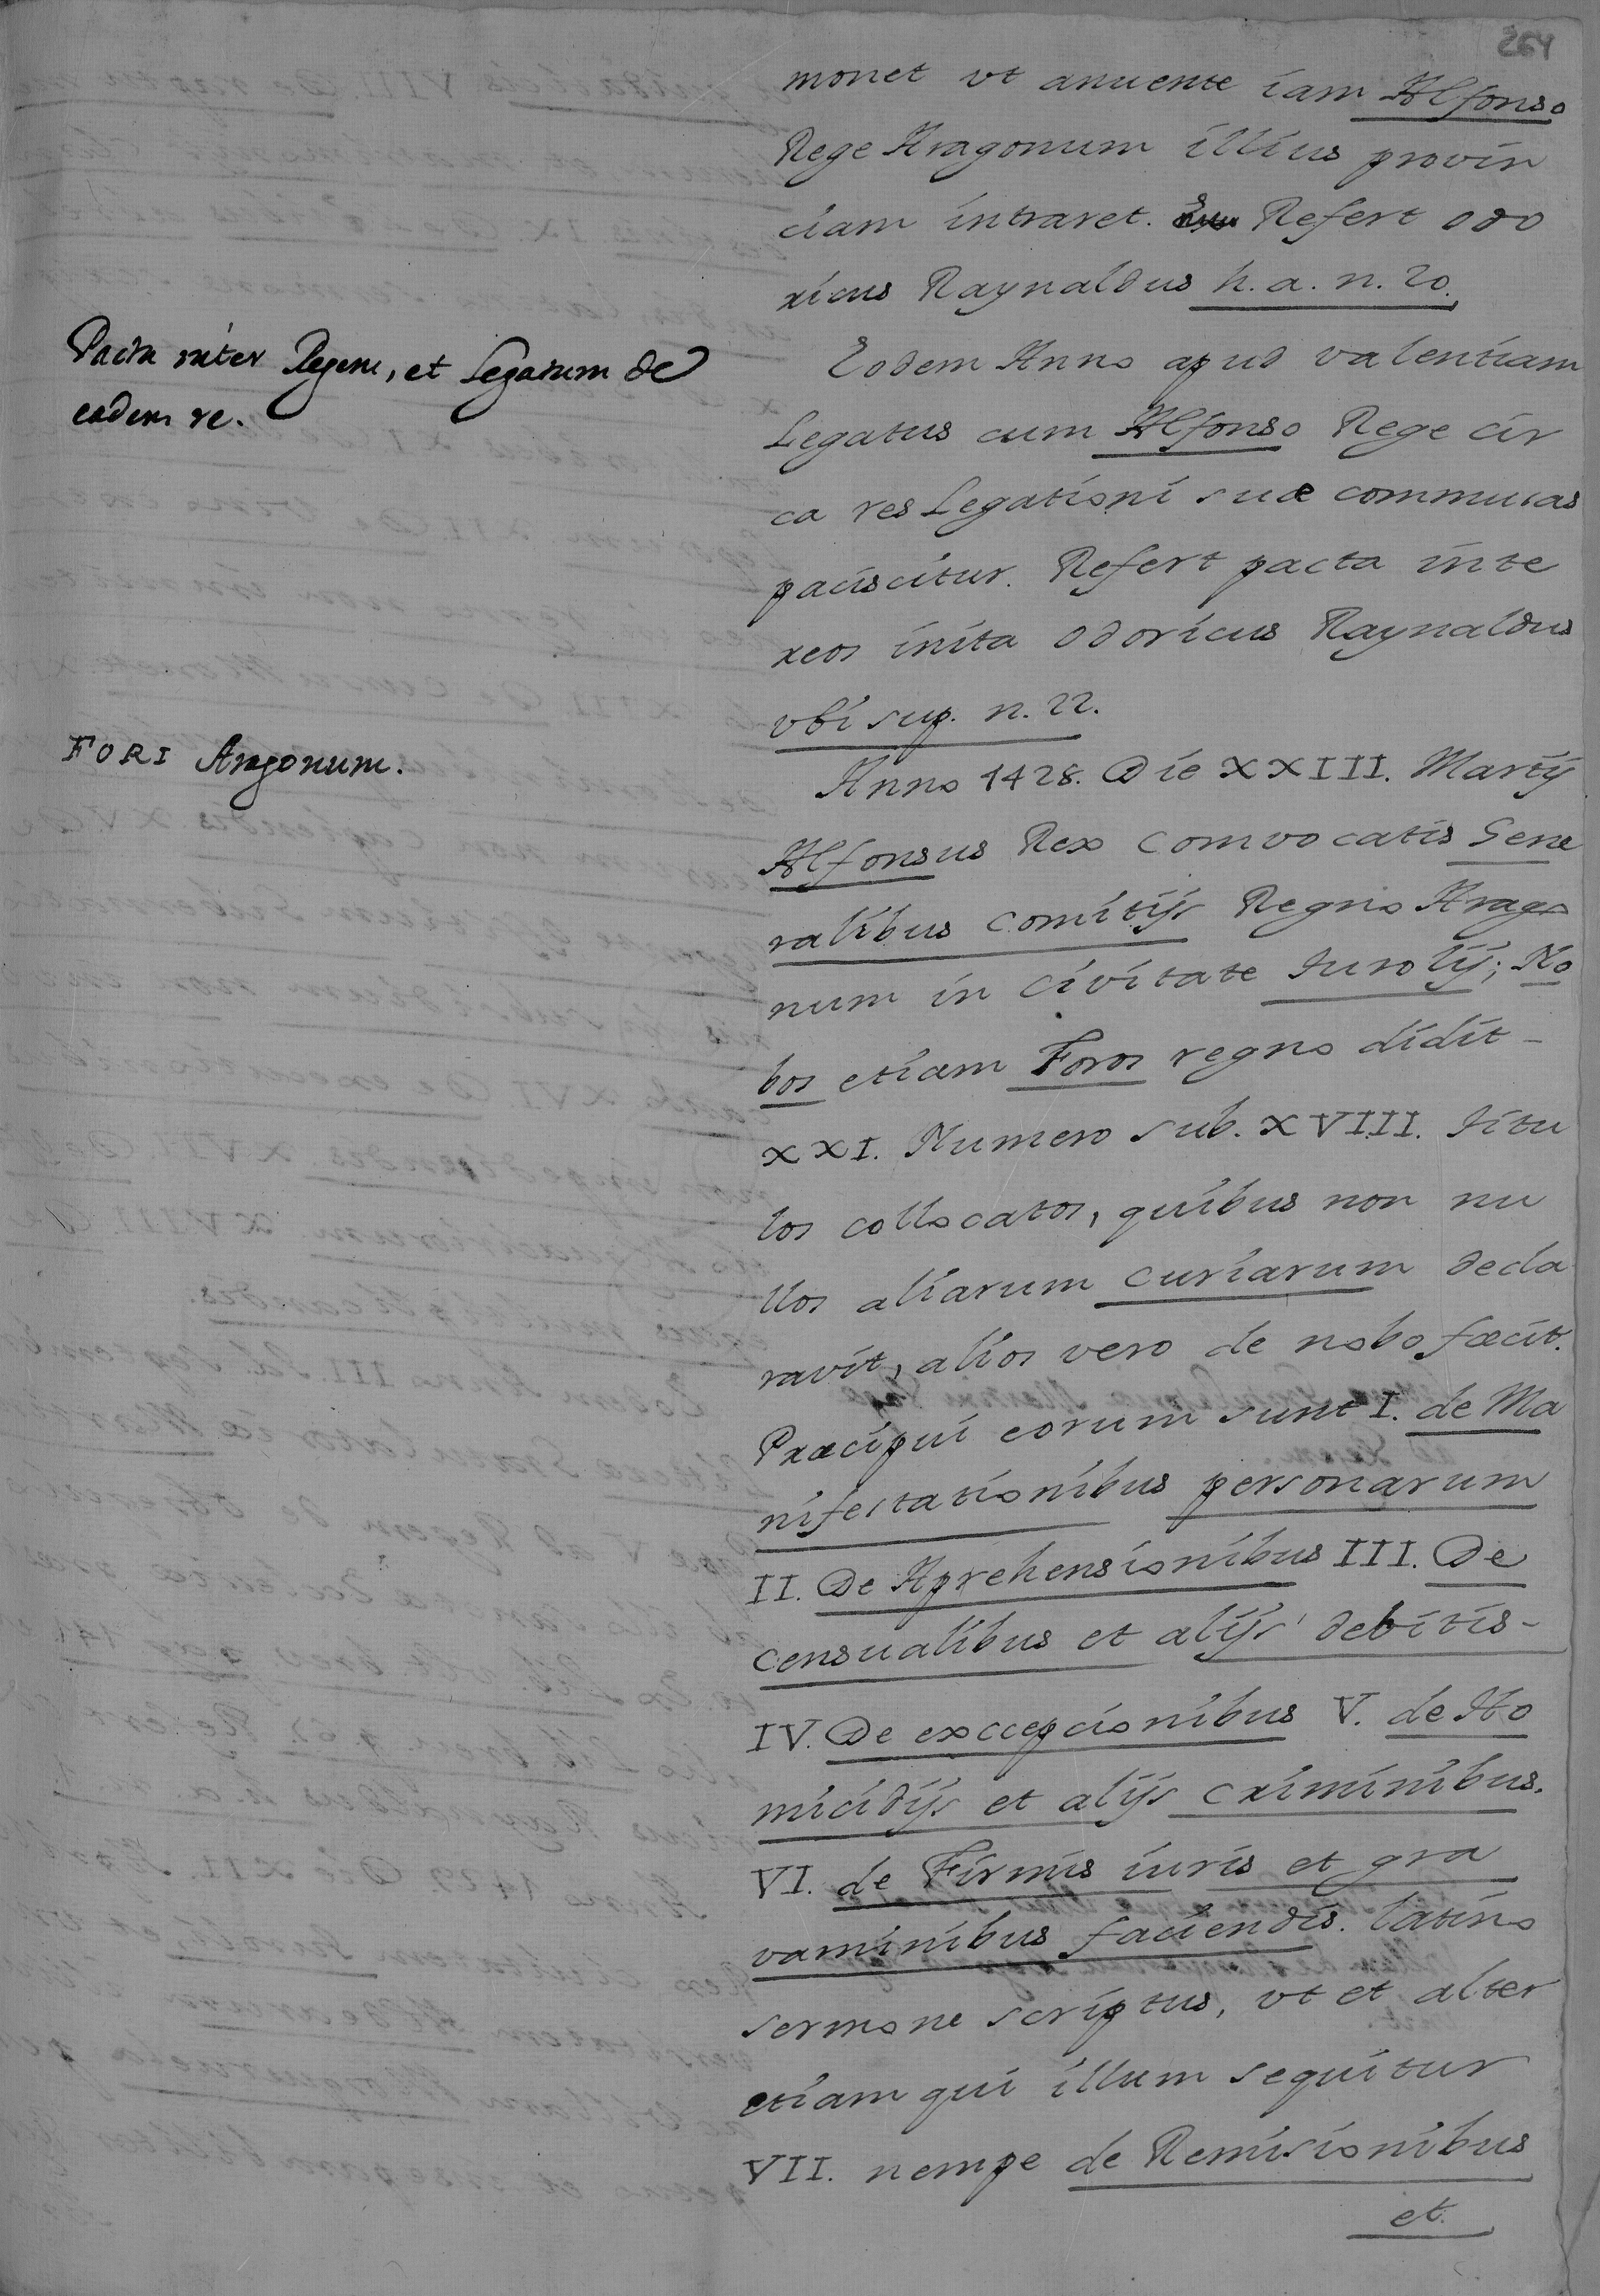 264
monet vt anuente iam Alfonso
Rege Aragonum illius provin
ciam intraret. Refert Odo
ricus Raynaldus h. a. n. 20.
Pacta inter Regem, et Legatum de
eadem re.
Eodem Anno apud valentiam
Legatus cum Alfonso Rege cir
ca res Legationi suæ commissas
paciscitur. Refert pacta inte
reos inita Odoricus Raynaldus
vbi sup. n. 22.
FORI Aragonum.
Anno 1428. Die XXIII. Martij
Alfonsus Rex Comvocatis Gene
ralibus comitijs Regno Arago
num in Civitate Turolij; No
bos etiam Foros regno didit -
XXI. Numero sub. XVIII. titu
los collocatos, quibus non nu
llos aliarum curiarum decla
ravit, alios vero de nobo fæcit.
Præcipui eorum sunt I. de Ma
nifestationibus personarum
II. De Aprehensionibus III. De
censualibus et alijs debitis -
IV. De excepcionibus V. de Ho
micidijs et alijs criminibus.
VI. de Firmis iuris et gra
vaminibus faciendis. latino
sermone scriptus, vt et alter
etiam qui illum sequitur
VII. nempe de Remisionibus
et.